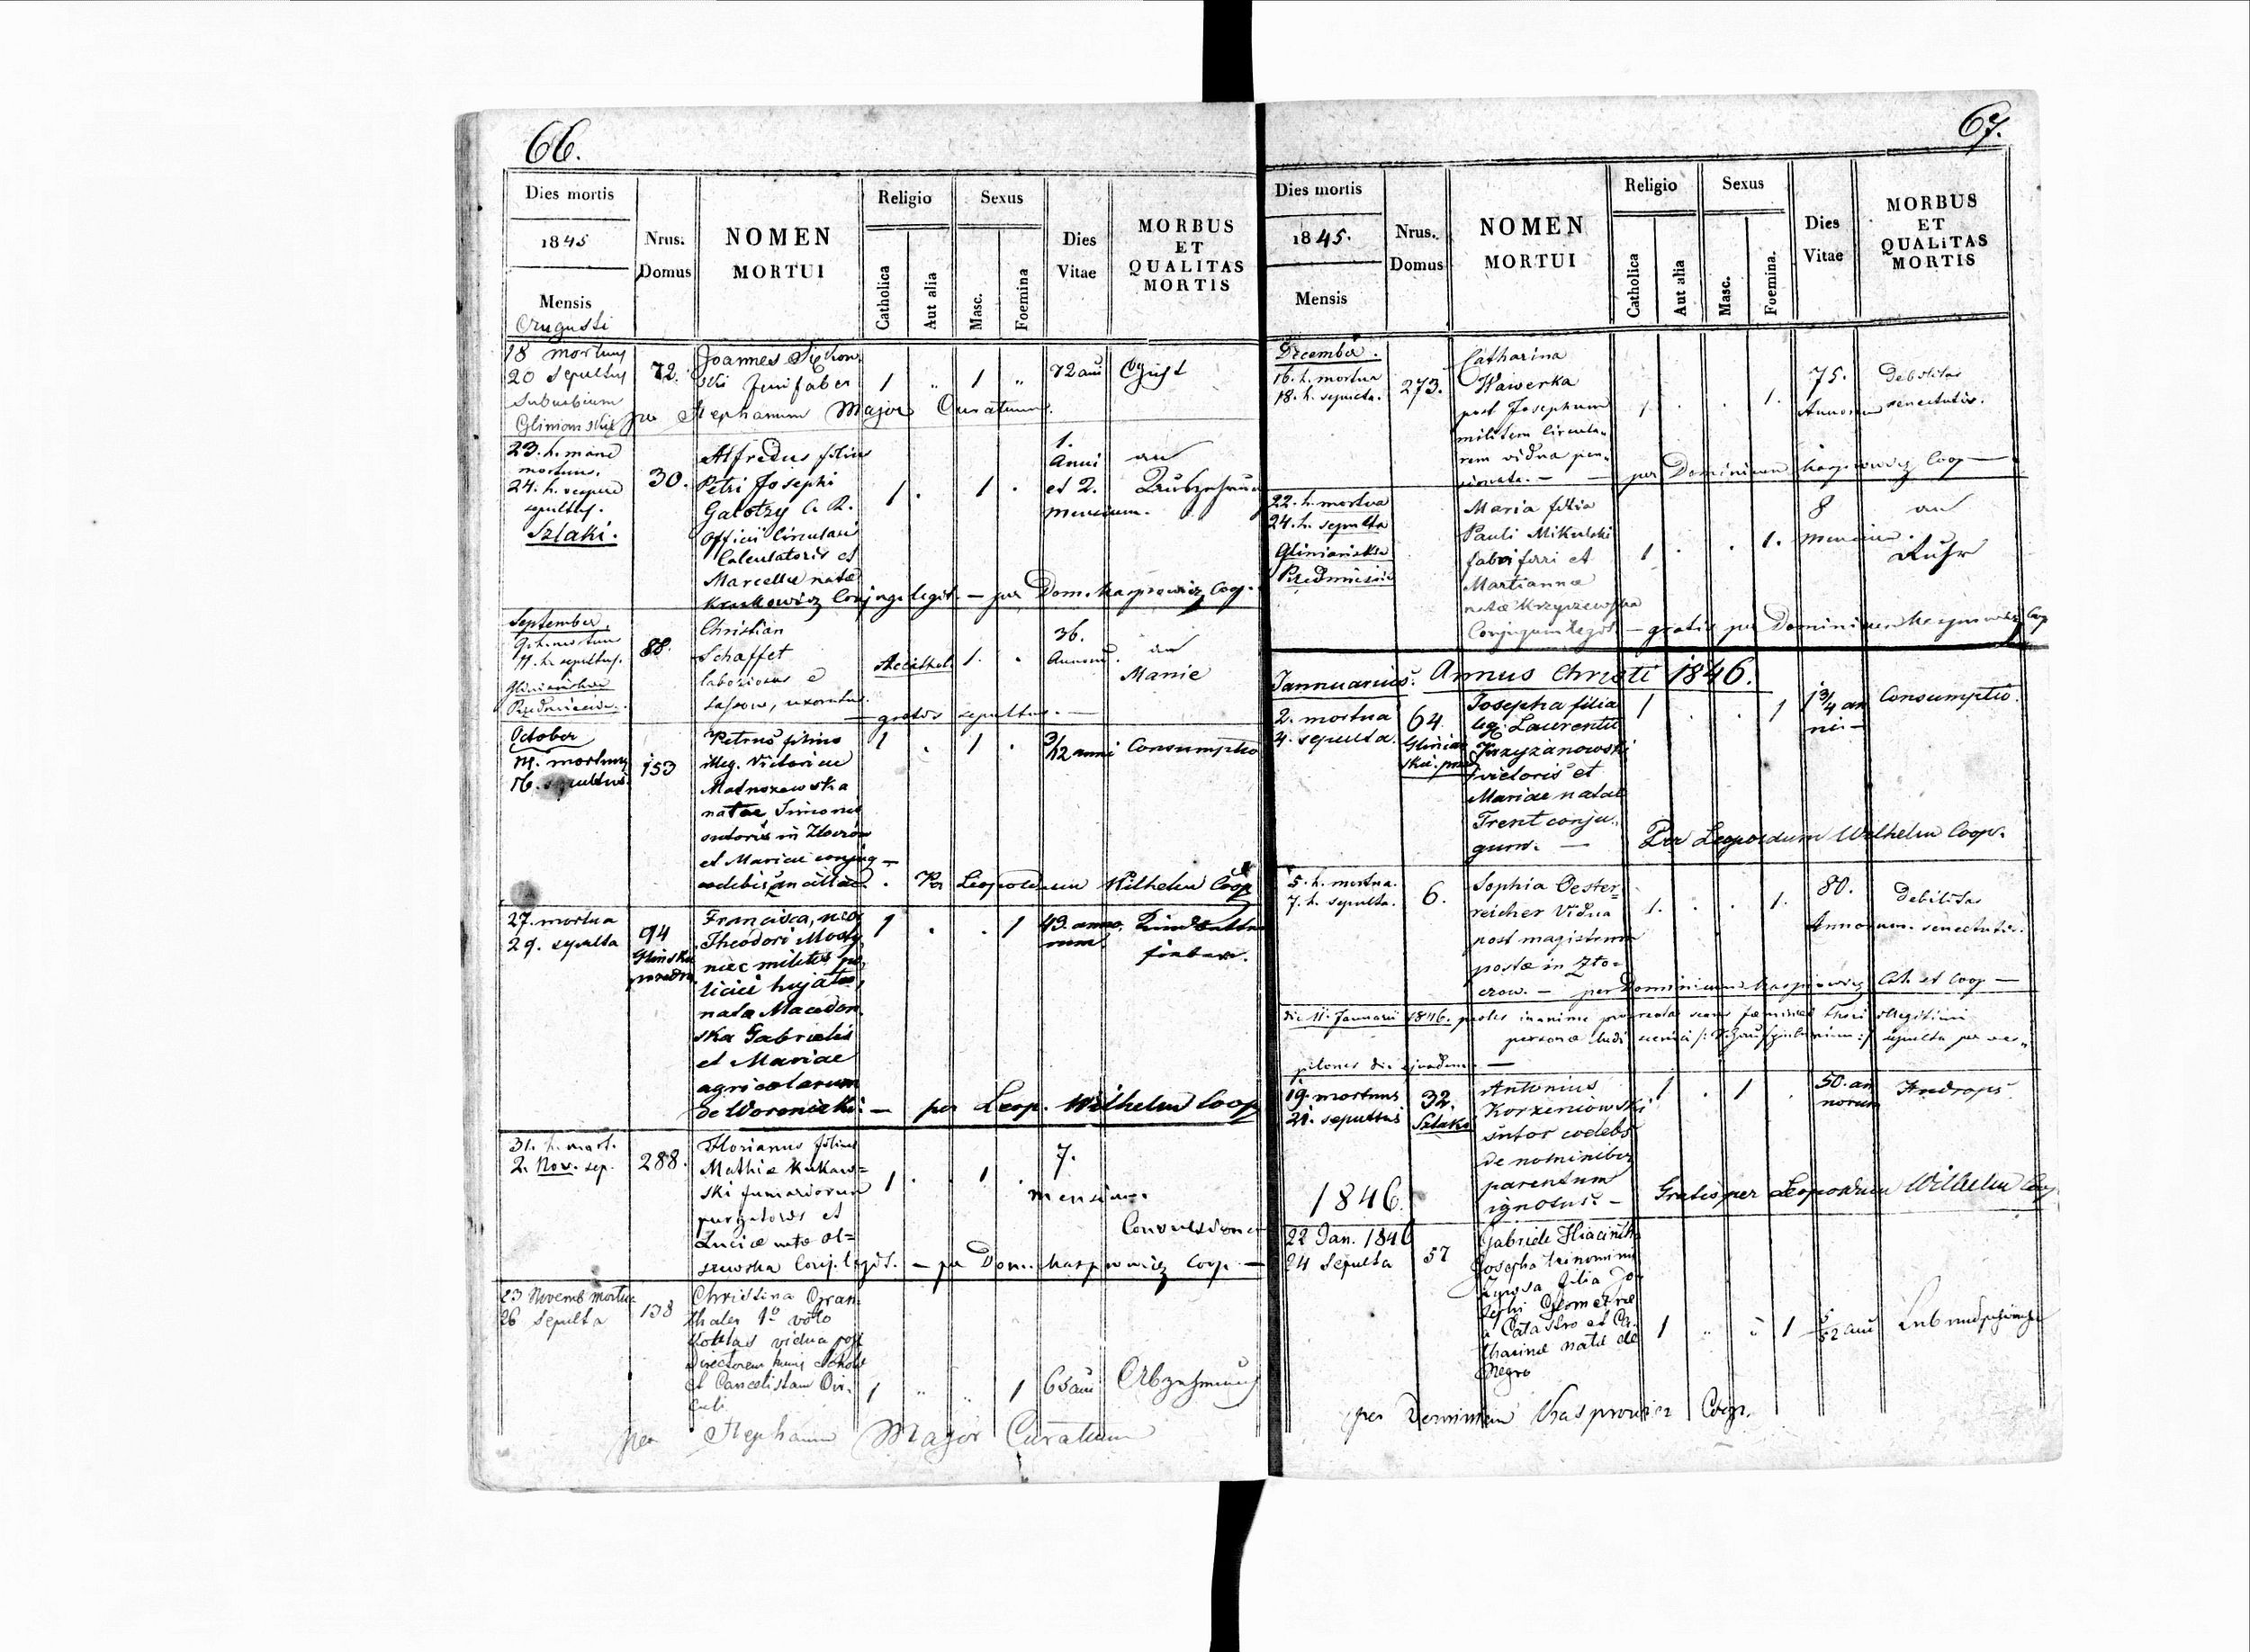 66.
Dies mortis
1845
Mensis
Augusti
Nrus.
Domus
NOMEN
MORTUI
Religio
Catholica
Aut alia
Sexus
Masc.
Foemina
Dies
Vitae
MORBUS
ET
QUALITAS
MORTIS
18 mortuus
20 sepultus
Suburbium
72.
Joannes
faber
1 " 1 "
72 ann
per Stephanum Major Curatum.
23. h. mane
mortuus.
24. h. vespere
sepultus.
Szlaki.
30.
Alfredus filius
Petri Josephi
C. R.
Officii Circularis
Calculatoris et
Marcellae natae
Conjug. legit. — per Dom. Kasprowicz Coop.
1 . 1 .
1.
Anni
et 2.
mensium.
an
September.
mortuus
11. h. sepultus.
88.
Christian
Schaffet
laboriosus e
Sassow, uxoratus.
Acathol. 1. .
36.
Annorum.
an
Manie
— gratis sepultus. —
October
14. mortuus
16. sepultus
153
Petrus filius
illeg. Victoriae
natae Simonis
sutoris in Złoczów
et Mariae conjug —
1 . 1 .
3/12 anni
Consumptio
Per Leopoldum Wilhelm Coop
27. mortua
29. sepulta
94
Francisca, uxor
Theodori
militis po
licici hujatis,
nata Macedon
ska Gabrielis
et Mariae
agricolarum
de Woroniaki. — per Leop. Wilhelm Coop
1 . . 1
43. anno
rum
31. h. mort.
2. Nov. sep.
288.
Florianus filius
Mathiae Kukaw=
ski fumariorum
purgatoris et
Luciae natae Ol=
szewska Conj. legit. — per Dom. Kasprowicz Coop. —
1 . 1 .
7.
mensium.
Convulsione
23 Novemb mortua
26 Sepulta
138
Christina
1o voto
vidua post
Directorem
et Cancelistam Cir.
culi
1 " " 1
65 ann
Abzehrung
per Stephanum Major Curatum
67.
Dies mortis
1845.
Mensis
Nrus.
Domus
NOMEN
MORTUI
Religio
Catholica
Aut alia
Sexus
Masc.
Foemina.
Dies
Vitae
MORBUS
ET
QUALiTAS
MORTIS
December.
16. h. mortua
18. h. sepulta.
273.
Catharina
Wawerka
post Josephum
militem Circula„
rem vidua pen„
sionata. — — per Dominicum Kasprowicz Coop —
1 . . 1.
75.
Annorum
Debilitas
senectutis.
22. h. mortua
24. h. sepulta
Gliniańskie
Przedmieście
Maria filia
Pauli Mikulski
fabri ferri et
Martianna
natae Krzyszewska
Conjugum legit. — gratis per Dominicum Kasprowicz Coop
1 . . 1.
8
mensium.
an
Ruhr
Jannuarius. Annus Christi 1846.
2. mortua
4. sepulta.
64
Josepha filia
leg. Laurentii
Krzyzanowski
Mariae natae
Trent conju„
gum. —
1 . . 1
1 3/4 an
ni —
Consumptio.
Per Leopoldum Wilhelm Coop.
5. h. mortua.
7. h. sepulta.
6.
Sophia Oester=
reicher Vidua
post magistrum
postae in Zło=
czow. — per Dominicum Kasprowicz Cat. et Coop —
1. . . 1.
80.
Annorum.
Debilitas
senectutis.
die 11. Januarii 1846. proles inanimis procreata sexus foeminei thori illegitimi
personae ludi scenici
sepulta per ves„
pilones die ejusdem —
19. mortuus
21. sepultus
32.
Szlaki
Antonius
Korzeniowski
sutor coelebs
de nominibus
parentum
ignotus. —
1 . 1 .
50. an
norum
Hydrops
1846.
Gratis per Leopoldum Wilhelm Coop
22 Jan. 1846
24 Sepulta
57
Gabriele Hiacintha
Josepha trinomini
filia Jo
sephi Geometrae
a Catastro et Ca
tharinae natae de
Negro
1 " " 1
5/12 anni
per Dominicum Kasprowicz Coop.